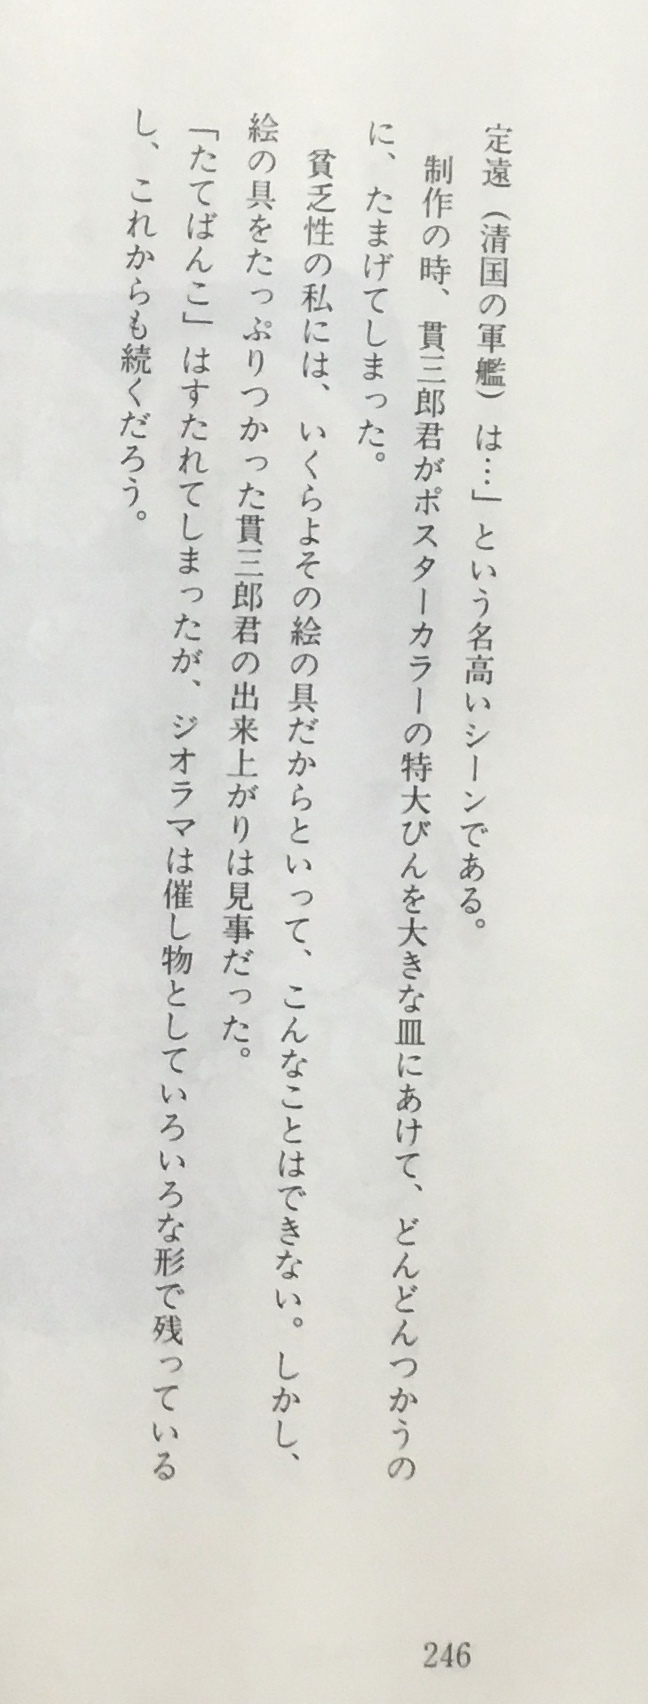 定遠（清国の軍艦）は…」という名高いシーンである。
　制作の時、貫三郎君がポスターカラーの特大びんを大きな皿にあけて、どんどんつかうの
に、たまげてしまった。
　貧乏性の私には、いくらよその絵の具だからといって、こんなことはできない。しかし、
絵の具をたっぷりつかった貫三郎君の出来上がりは見事だった。
「たてばんこ」はすたれてしまったが、ジオラマは催し物としていろいろな形で残っている
し、これからも続くだろう。
246